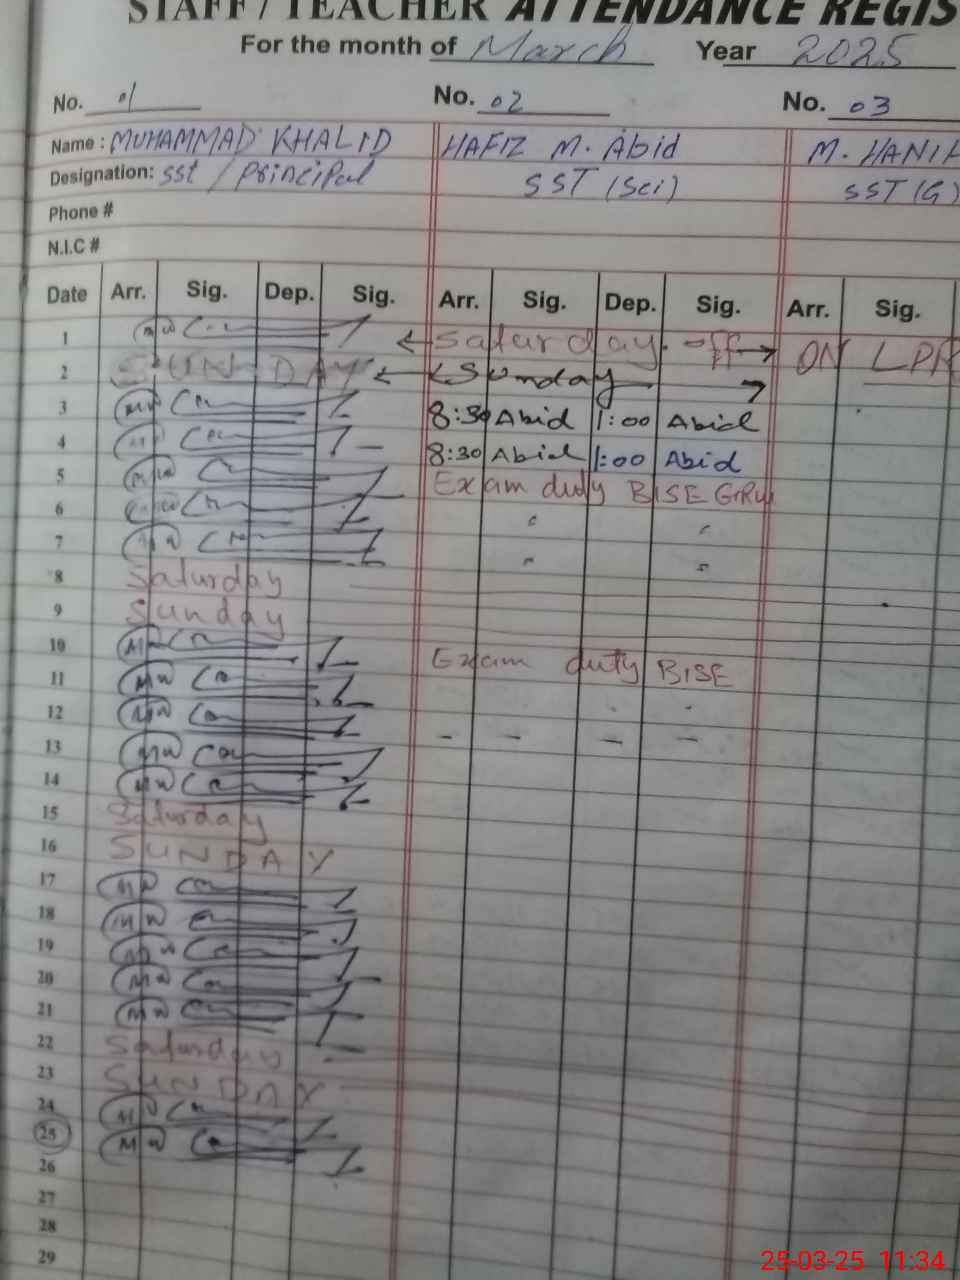 STAFF / TEACHER ATTENDANCE REGIS
For the month of March Year 2025
No. 01 No. 02 No. 03
Name : MUHAMMAD KHALID HAFIZ M. Abid M. HANI
Designation: SST / Principal SST (Sci) SST (G)
Phone #
N.I.C #
Date Arr. Sig. Dep. Sig. Arr. Sig. Dep. Sig. Arr. Sig.
1 Saturday off ON LPR
2 SUNDAY Sunday
3 8:30 Abid 1:00 Abid
4 8:30 Abid 1:00 Abid
5 Exam duty BISE GRW
6
7
8 Saturday
9 Sunday
10
11 Exam duty BISE
12
13
14
15 Saturday
16 SUNDAY
17
18
19
20
21
22 Saturday
23 SUNDAY
24
25
26
27
28
29
25-03-25 11:34